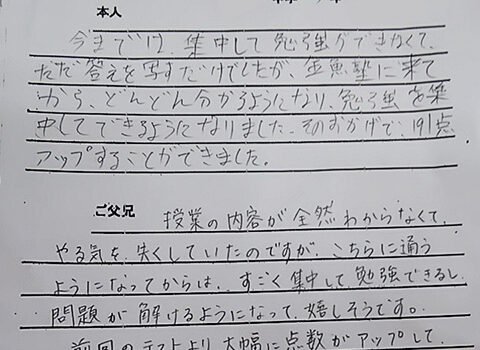 本人
今までは、集中して勉強ができなくて、
ただ答えを写すだけでしたが、金魚塾に来て
から、どんどん分かるようになり、勉強を集
中してできるようになりました。そのおかげで、191点
アップすることができました。
ご父兄
授業の内容が全然わからなくて、
やる気を失くしていたのですが、こちらに通う
ようになってからは、すごく集中して勉強できるし、
問題が解けるようになって、嬉しそうです。
前回のテストより大幅に点数がアップして、